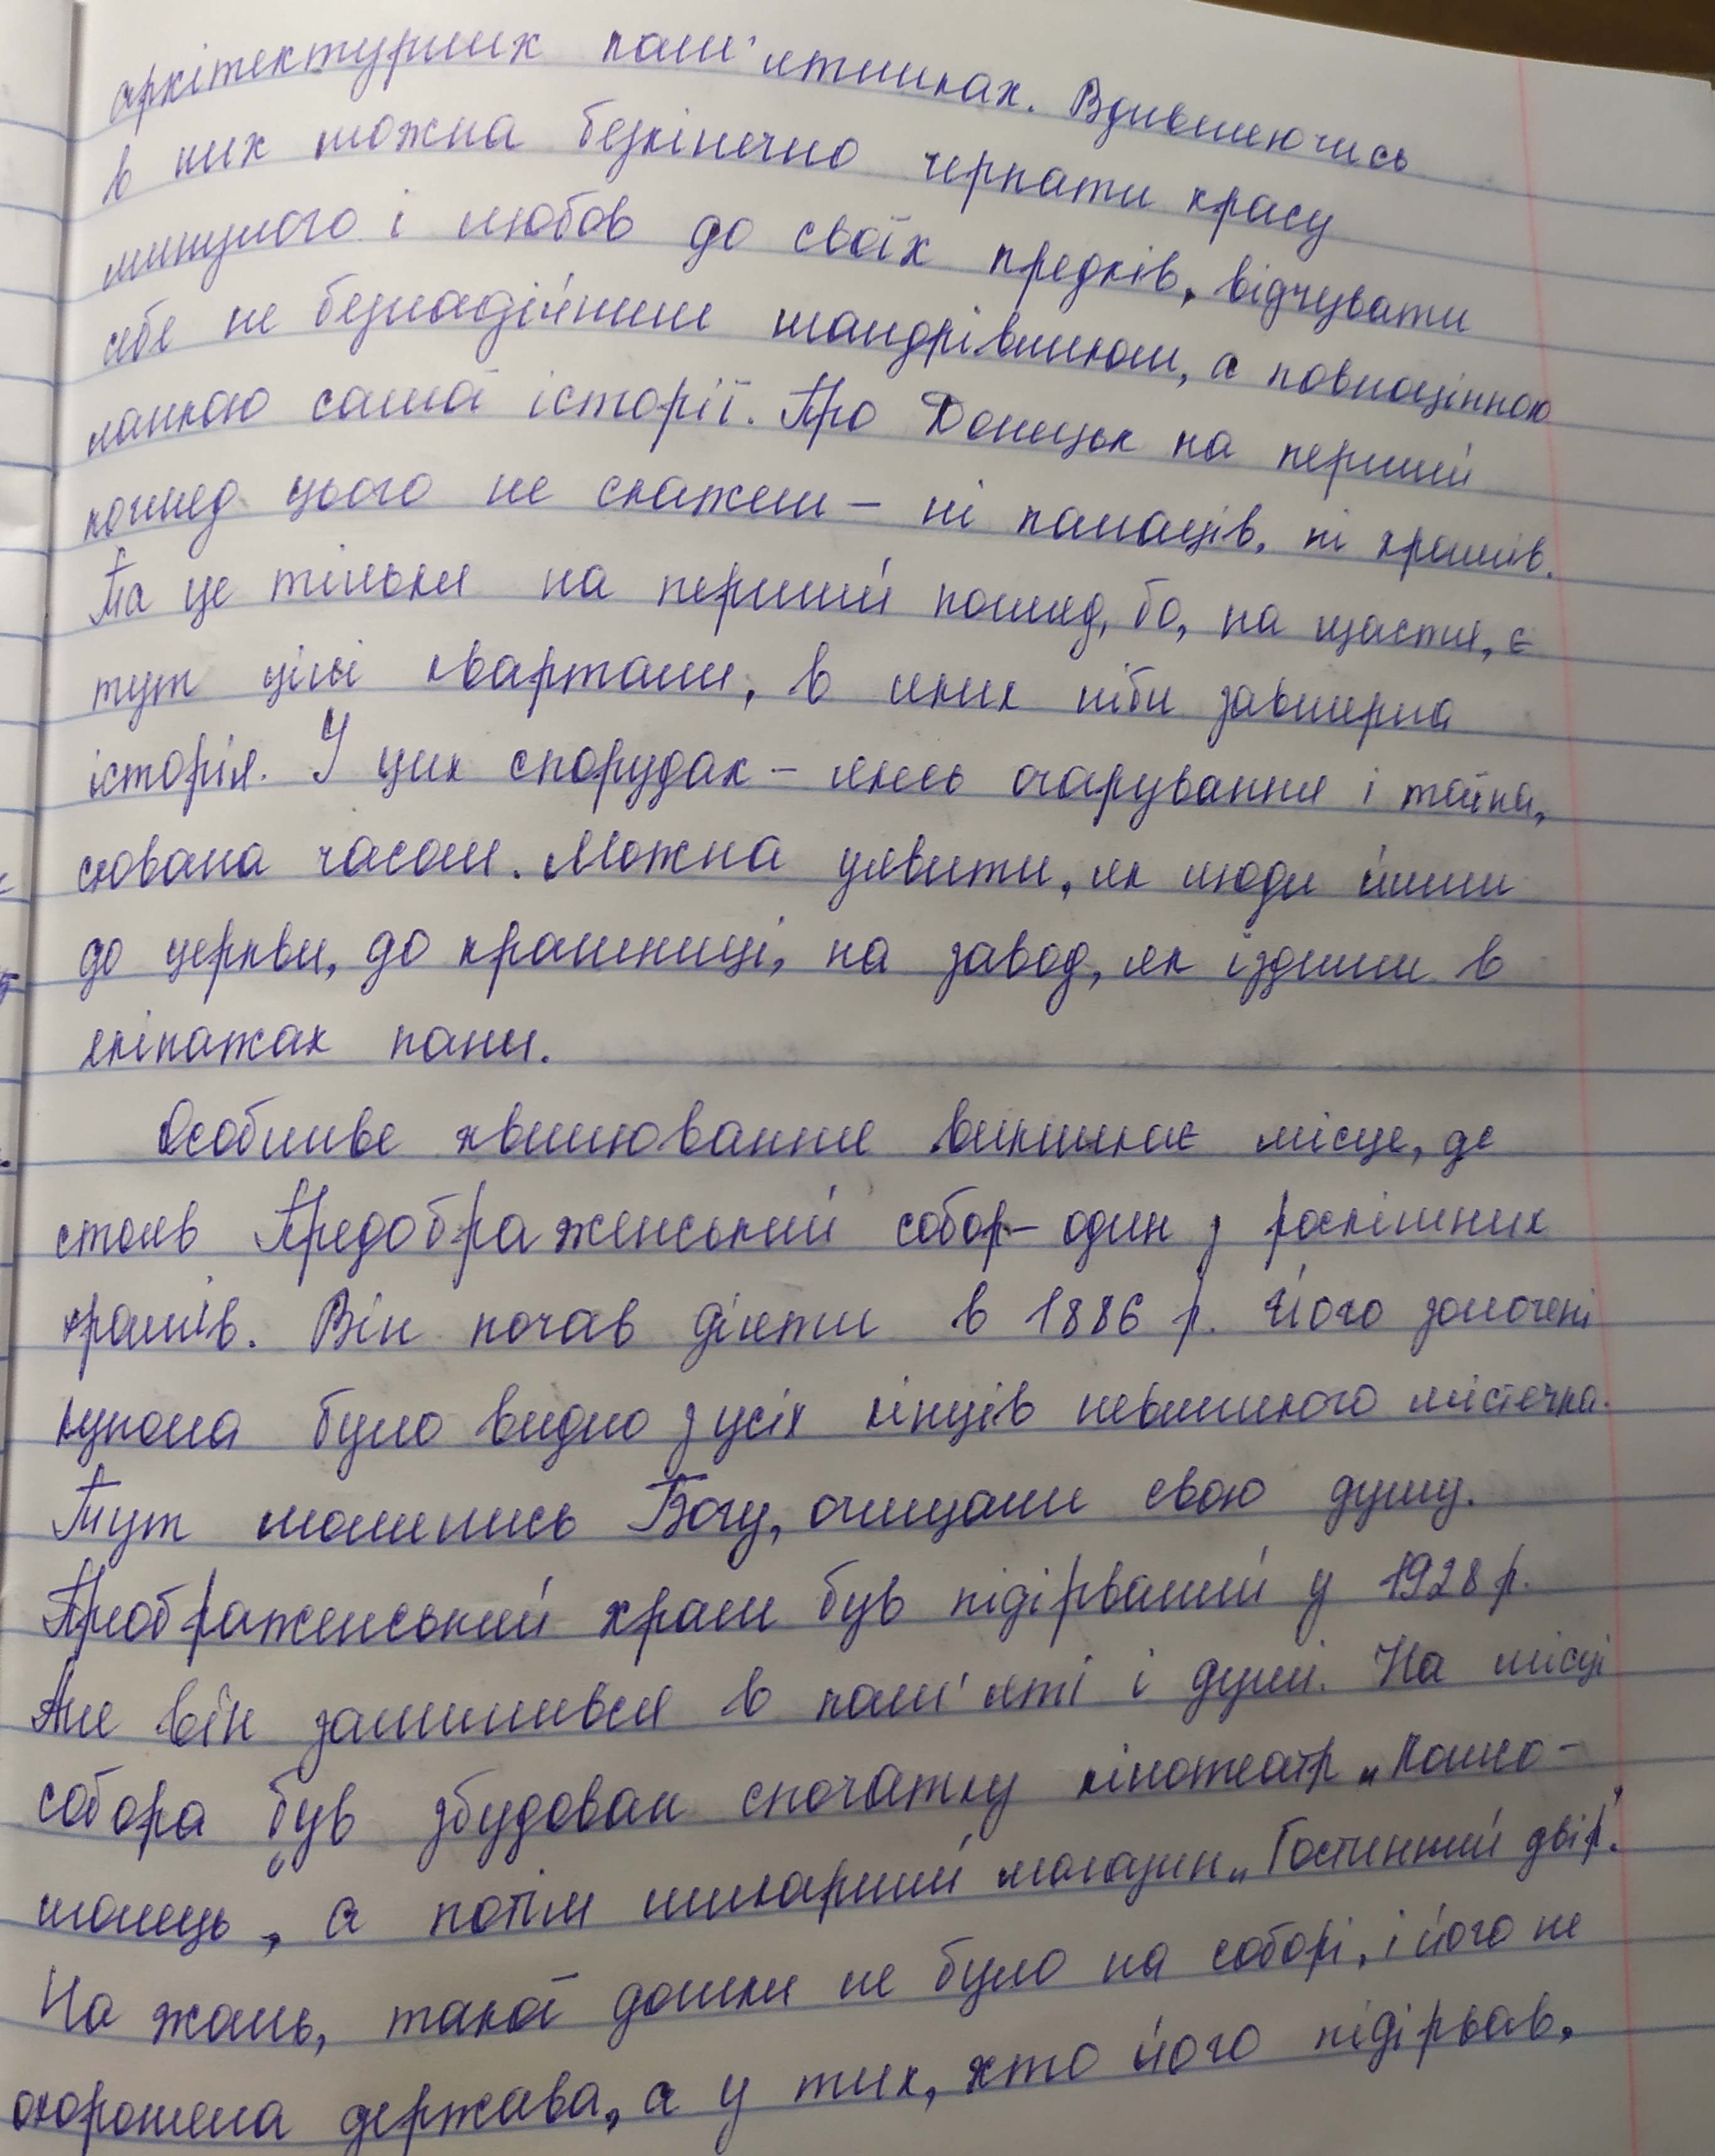 архітектурних пам'ятниках. Вдивляючись
в них можна безкінечно черпати красу
минулого і любов до своїх предків, відчувати
себе не безнадійним мандрівником, а повноцінною
ланкою самої історії. Про Донецьк на перший
погляд цього не скажеш – ні палаців, ні храмів.
Та це тільки на перший погляд, бо, на щастя, є
тут цілі квартали, в яких ніби завмерла
історія. У цих спорудах – якесь очарування і тайна,
схована часом. Можна уявити, як люди йшли
до церкви, до крамниці, на завод, як їздили в
екіпажах пани.
Особливе хвилювання викликає місце, де
стояв Предображенський собор – один з розкішних
храмів. Він почав діяти в 1886 р. Його золочені
купола було видно з усіх кінців невеликого містечка.
Тут молились Богу, очищали свою душу.
Приображенський храм був підірваний у 1928 р.
Але він залишився в пам'яті і душі. На місці
собора був збудован спочатку кінотеатр „Комсо-
молець", а потім шикарний магазин „Гостинний двір".
На жаль, такої дошки не було на соборі, і його не
охороняла держава, а у тих, хто його підірвав,